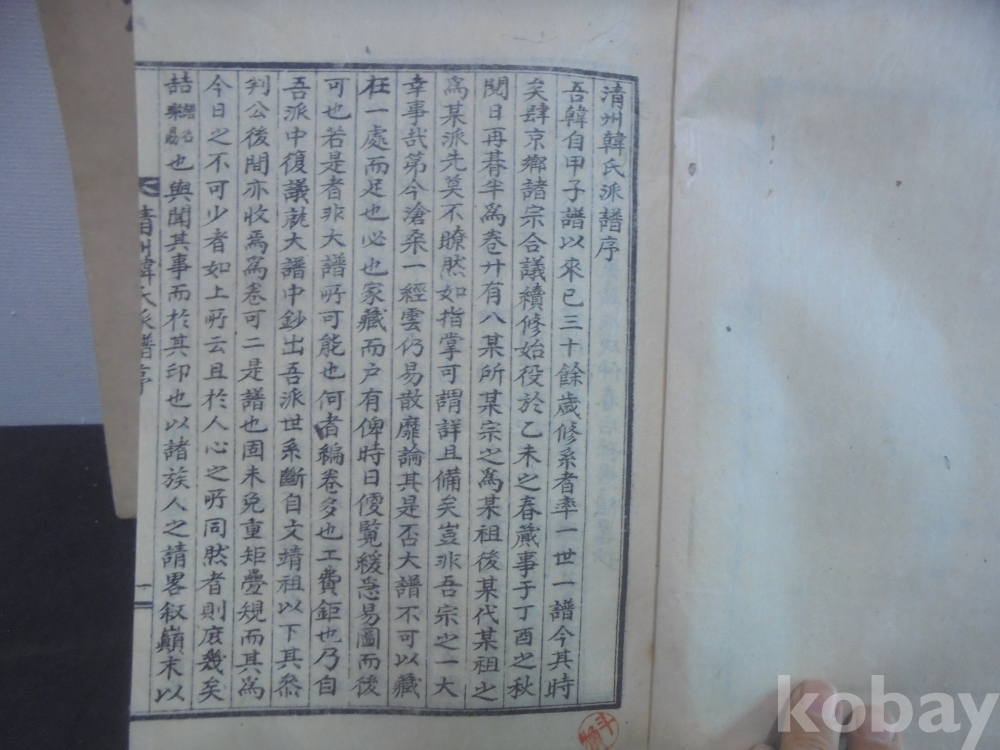 清州韓氏派譜序
吾韓自甲子譜以來已三十餘歲修系者率一世一譜今其時
矣肆京鄉諸宗合議續修始役於乙未之春蕆事于丁酉之秋
閱日再朞半爲卷廿有八某所某宗之爲某祖後某代某祖之
爲某派先莫不瞭然如指掌可謂詳且備矣豈非吾宗之一大
幸事哉第今滄桑一經雲仍易散靡論其是否大譜不可以藏
在一處而足也必也家藏而户有俾時日便覧緩急易圖而後
可也若是者非大譜所可能也何者編卷多也工費鉅也乃自
吾派中復議就大譜中鈔出吾派世系斷自文靖祖以下其叅
判公後間亦收焉爲卷可二是譜也固未免重矩疊規而其爲
今日之不可少者如上所云且於人心之所同然者則庶幾矣
喆也與聞其事而於其印也以諸族人之請畧叙巓末以
清州韓氏派譜序
一
kobay